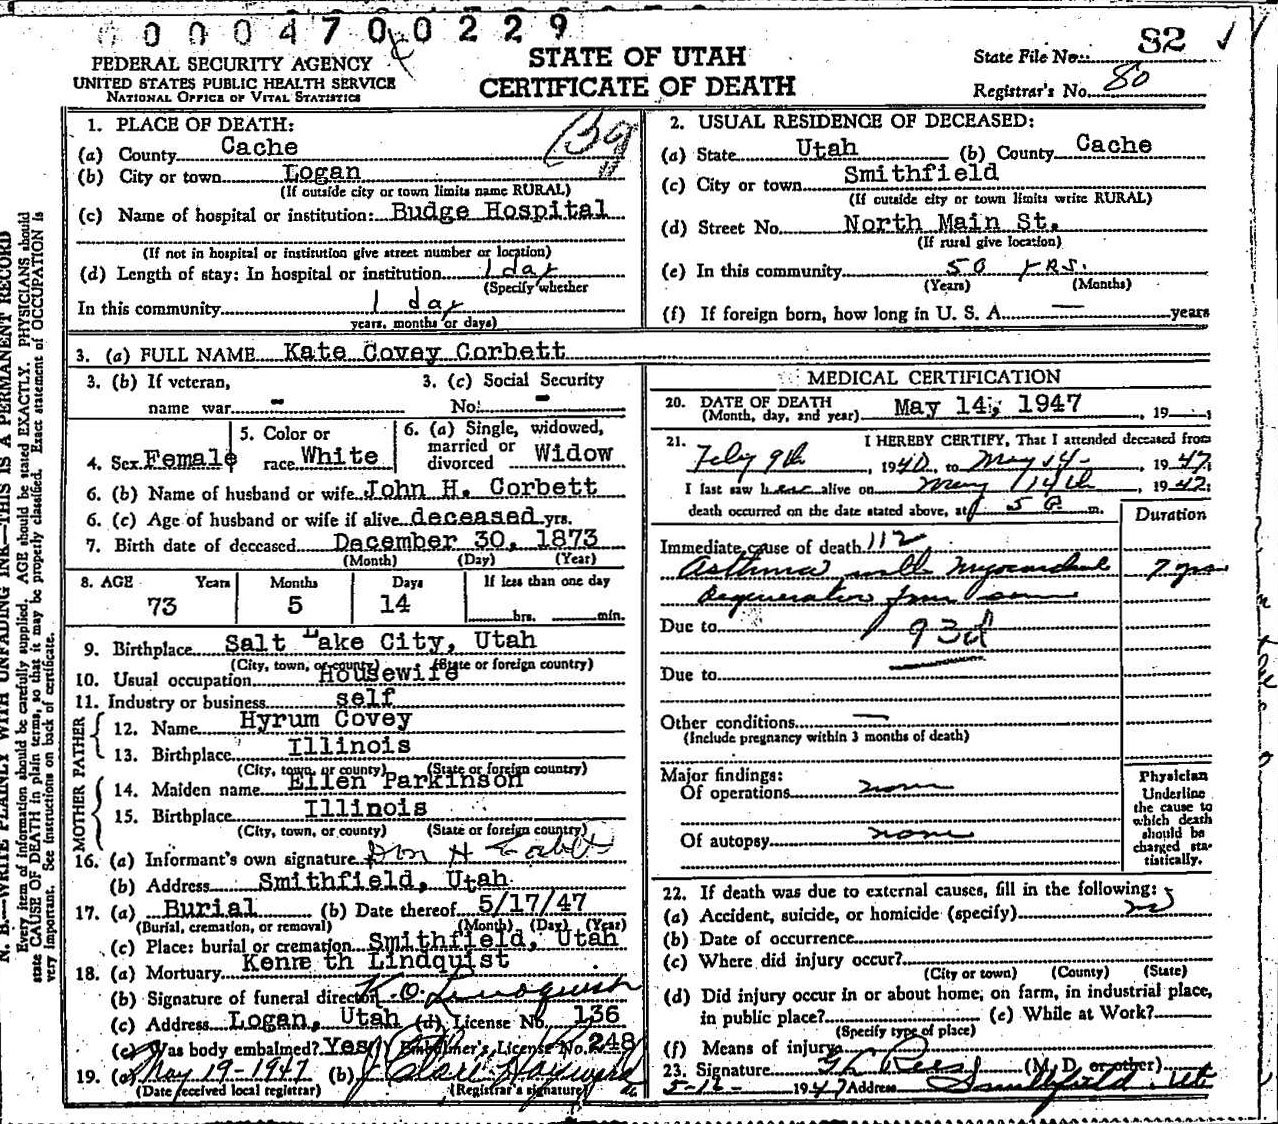 0000470 0229
FEDERAL SECURITY AGENCY
UNITED STATES PUBLIC HEALTH SERVICE
NATIONAL OFFICE OF VITAL STATISTICS
STATE OF UTAH
CERTIFICATE OF DEATH
State File No. 82
Registrar's No. 80
N. B.—WRITE PLAINLY WITH UNFADING INK—THIS IS A PERMANENT RECORD
Every item of information should be carefully supplied. AGE should be stated EXACTLY. PHYSICIANS should
state CAUSE OF DEATH in plain terms, so that it may be properly classified. Exact statement of OCCUPATION is
very important. See instructions on back of certificate.
1. PLACE OF DEATH:
(a) County Cache
(b) City or town Logan
(If outside city or town limits name RURAL)
(c) Name of hospital or institution: Budge Hospital
(If not in hospital or institution give street number or location)
(d) Length of stay: In hospital or institution 1 day
(Specify whether
In this community 1 day
years, months or days)
2. USUAL RESIDENCE OF DECEASED:
(a) State Utah (b) County Cache
(c) City or town Smithfield
(If outside city or town limits write RURAL)
(d) Street No. North Main St.
(If rural give location)
(e) In this community 50 yrs.
(Years) (Months)
(f) If foreign born, how long in U. S. A. — years
3. (a) FULL NAME Kate Covey Corbett
3. (b) If veteran, name war -
3. (c) Social Security No. -
4. Sex Female
5. Color or race White
6. (a) Single, widowed, married or divorced Widow
6. (b) Name of husband or wife John H. Corbett
6. (c) Age of husband or wife if alive deceased yrs.
7. Birth date of deceased December 30, 1873
(Month) (Day) (Year)
8. AGE Years Months Days If less than one day
73 5 14 hrs. min.
9. Birthplace Salt Lake City, Utah
(City, town, or county) (State or foreign country)
10. Usual occupation Housewife
11. Industry or business self
FATHER
12. Name Hyrum Covey
13. Birthplace Illinois
(City, town, or county) (State or foreign country)
MOTHER
14. Maiden name Ellen Parkinson
15. Birthplace Illinois
(City, town, or county) (State or foreign country)
16. (a) Informant's own signature Don H Corbett
(b) Address Smithfield, Utah
17. (a) Burial (b) Date thereof 5/17/47
(Burial, cremation, or removal) (Month) (Day) (Year)
(c) Place: burial or cremation Smithfield, Utah
18. (a) Mortuary Kenneth Lindquist
(b) Signature of funeral director K. O. Lindquist
(c) Address Logan, Utah (d) License No. 136
(e) Was body embalmed? Yes Embalmer's License No. 248
19. (a) May 19-1947 (b)
(Date received local registrar) (Registrar's signature)
MEDICAL CERTIFICATION
20. DATE OF DEATH May 14, 1947, 19
(Month, day, and year)
21. I HEREBY CERTIFY, That I attended deceased from
Feby 9th, 1940, to May 14-, 1947;
I last saw her alive on May 14th, 1947;
death occurred on the date stated above, at 5 P. m.
Duration
Immediate cause of death 112
Asthma with myocardial 7 yrs
degeneration from same
Due to 93d
Due to
Other conditions —
(Include pregnancy within 3 months of death)
Major findings:
Of operations none
Of autopsy none
Physician
Underline
the cause to
which death
should be
charged sta-
tistically.
22. If death was due to external causes, fill in the following:
(a) Accident, suicide, or homicide (specify) no
(b) Date of occurrence
(c) Where did injury occur?
(City or town) (County) (State)
(d) Did injury occur in or about home, on farm, in industrial place,
in public place? (e) While at Work?
(Specify type of place)
(f) Means of injury
23. Signature Rees (M. D. or other)
5-16- 1947 Address Smithfield, Ut